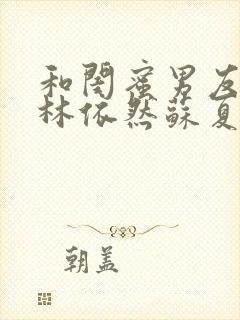 和闺蜜男友
林依然苏夏
朝盖